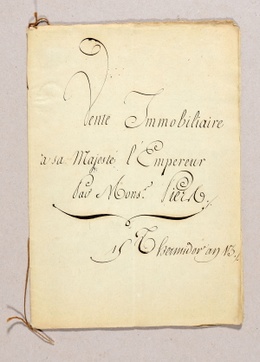 Vente Immobiliaire
à sa Majesté l'Empereur
Par Mons.r
15 Thermidor an 13